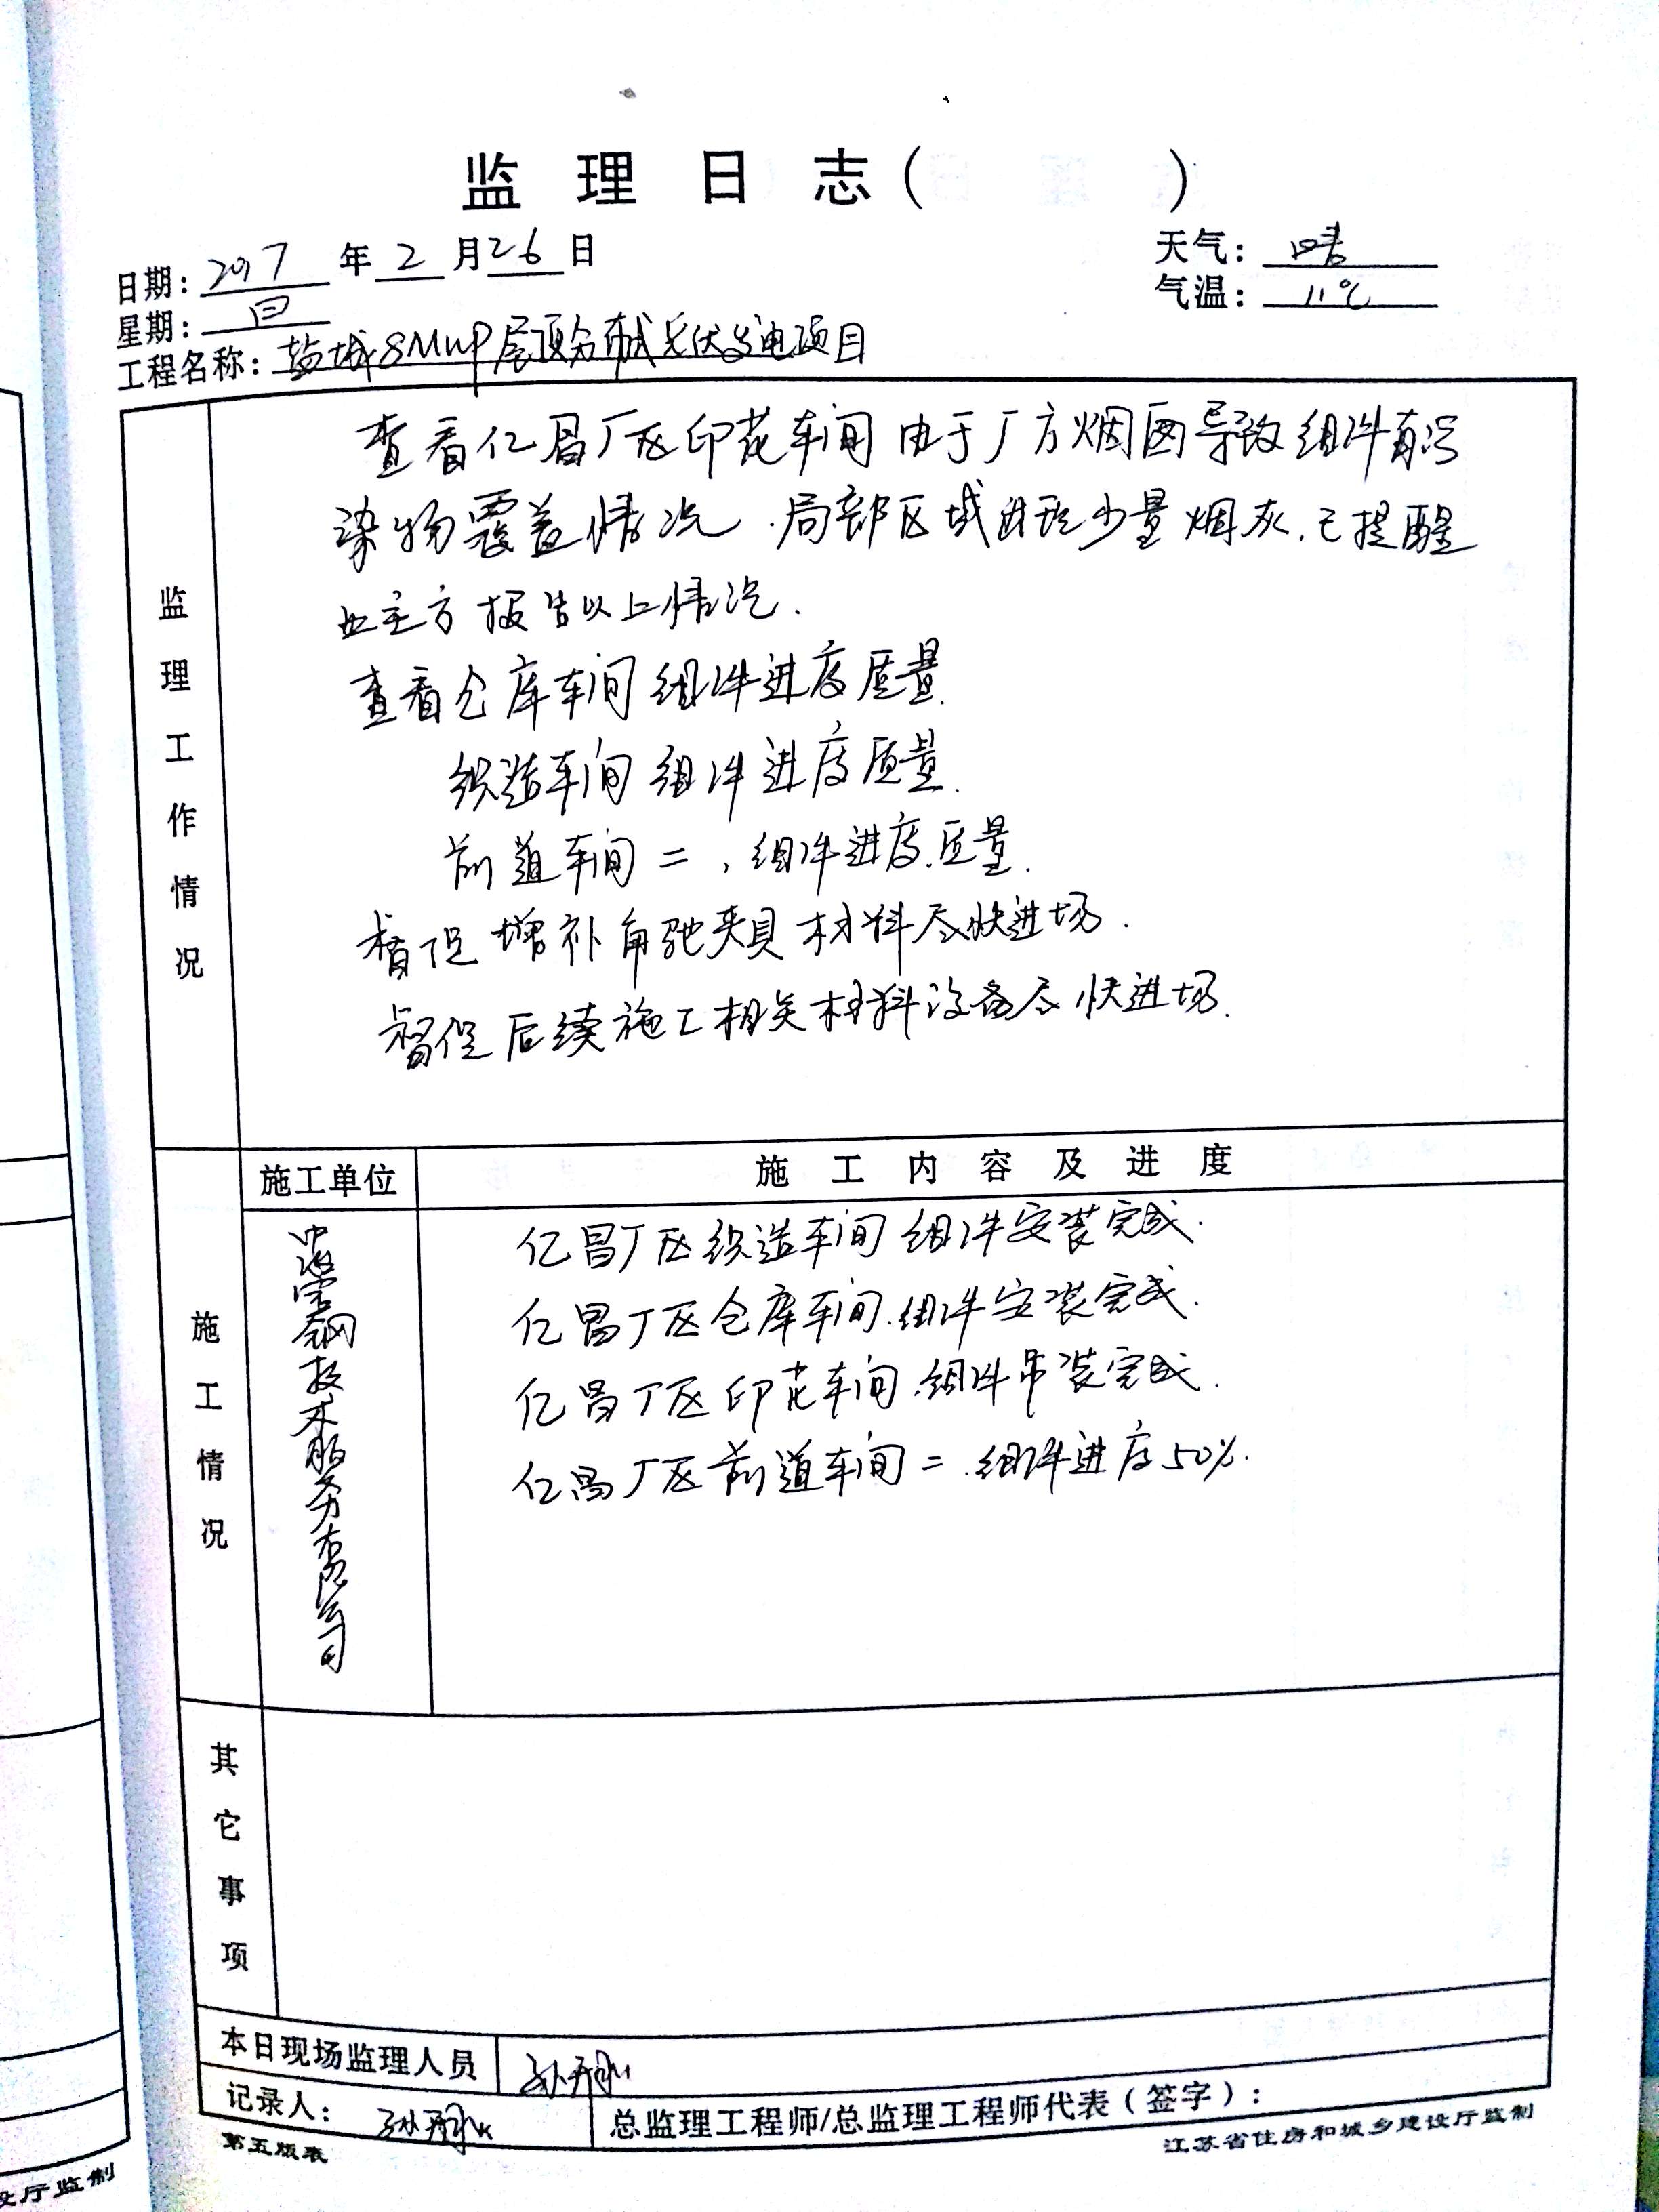 监理日志（ ）
日期：2017年2月26日
天气：晴
星期：日
气温：11℃
工程名称：盐城8MWP屋顶分布式光伏发电项目
监理工作情况
查看亿昌厂区印花车间由于厂方烟囱导致组件有污
染物覆盖情况.局部区域出现少量烟灰.已提醒
业主方报告以上情况.
查看仓库车间组件进度质量.
织造车间组件进度质量.
前道车间二,组件进度.质量.
督促增补角驰夹具材料尽快进场.
督促后续施工相关材料设备尽快进场.
施工情况
施工单位
施工内容及进度
技术服务有限公司
亿昌厂区织造车间组件安装完成.
亿昌厂区仓库车间.组件安装完成.
亿昌厂区印花车间.组件吊装完成.
亿昌厂区前道车间二.组件进度50%.
其它事项
本日现场监理人员 孙
记录人：孙
总监理工程师/总监理工程师代表（签字）：
第五版表
江苏省住房和城乡建设厅监制
设厅监制